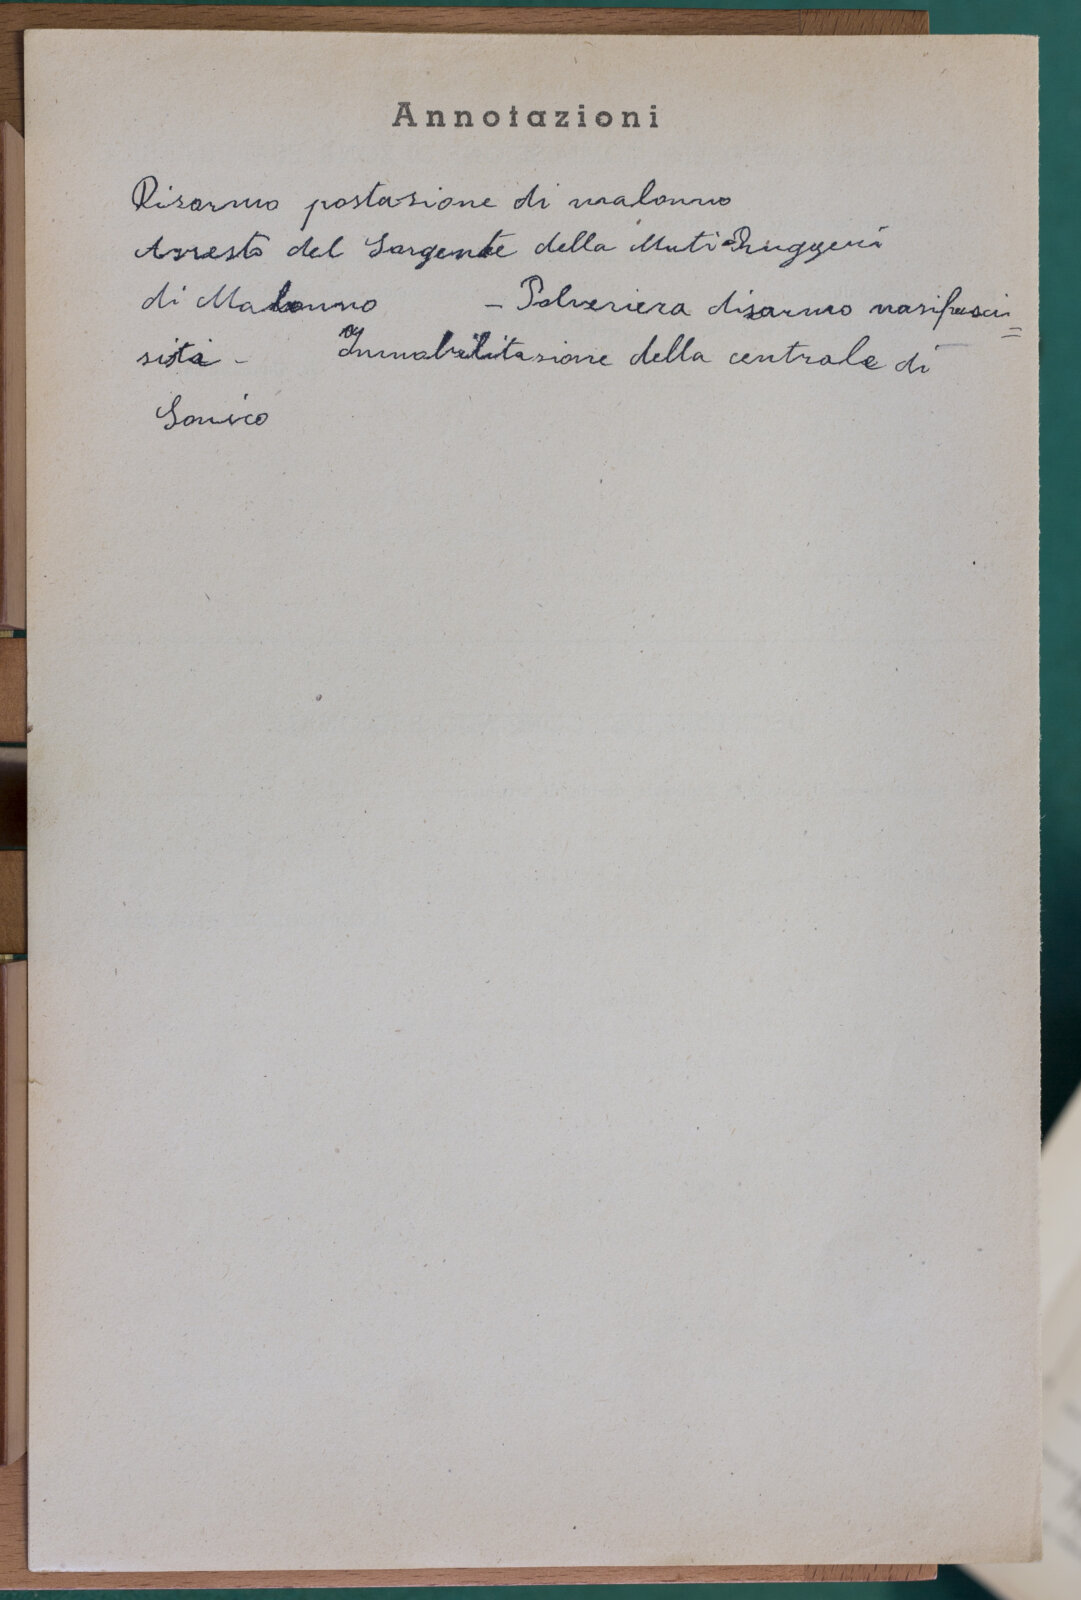 Annotazioni
Disarmo postasione di malonno
Arresto del Sargente della Muti Ruggeri
di Malonno – Polveriera disarmo nasifasci=
sisti –
Immobilitasione della centrale di
Sonico